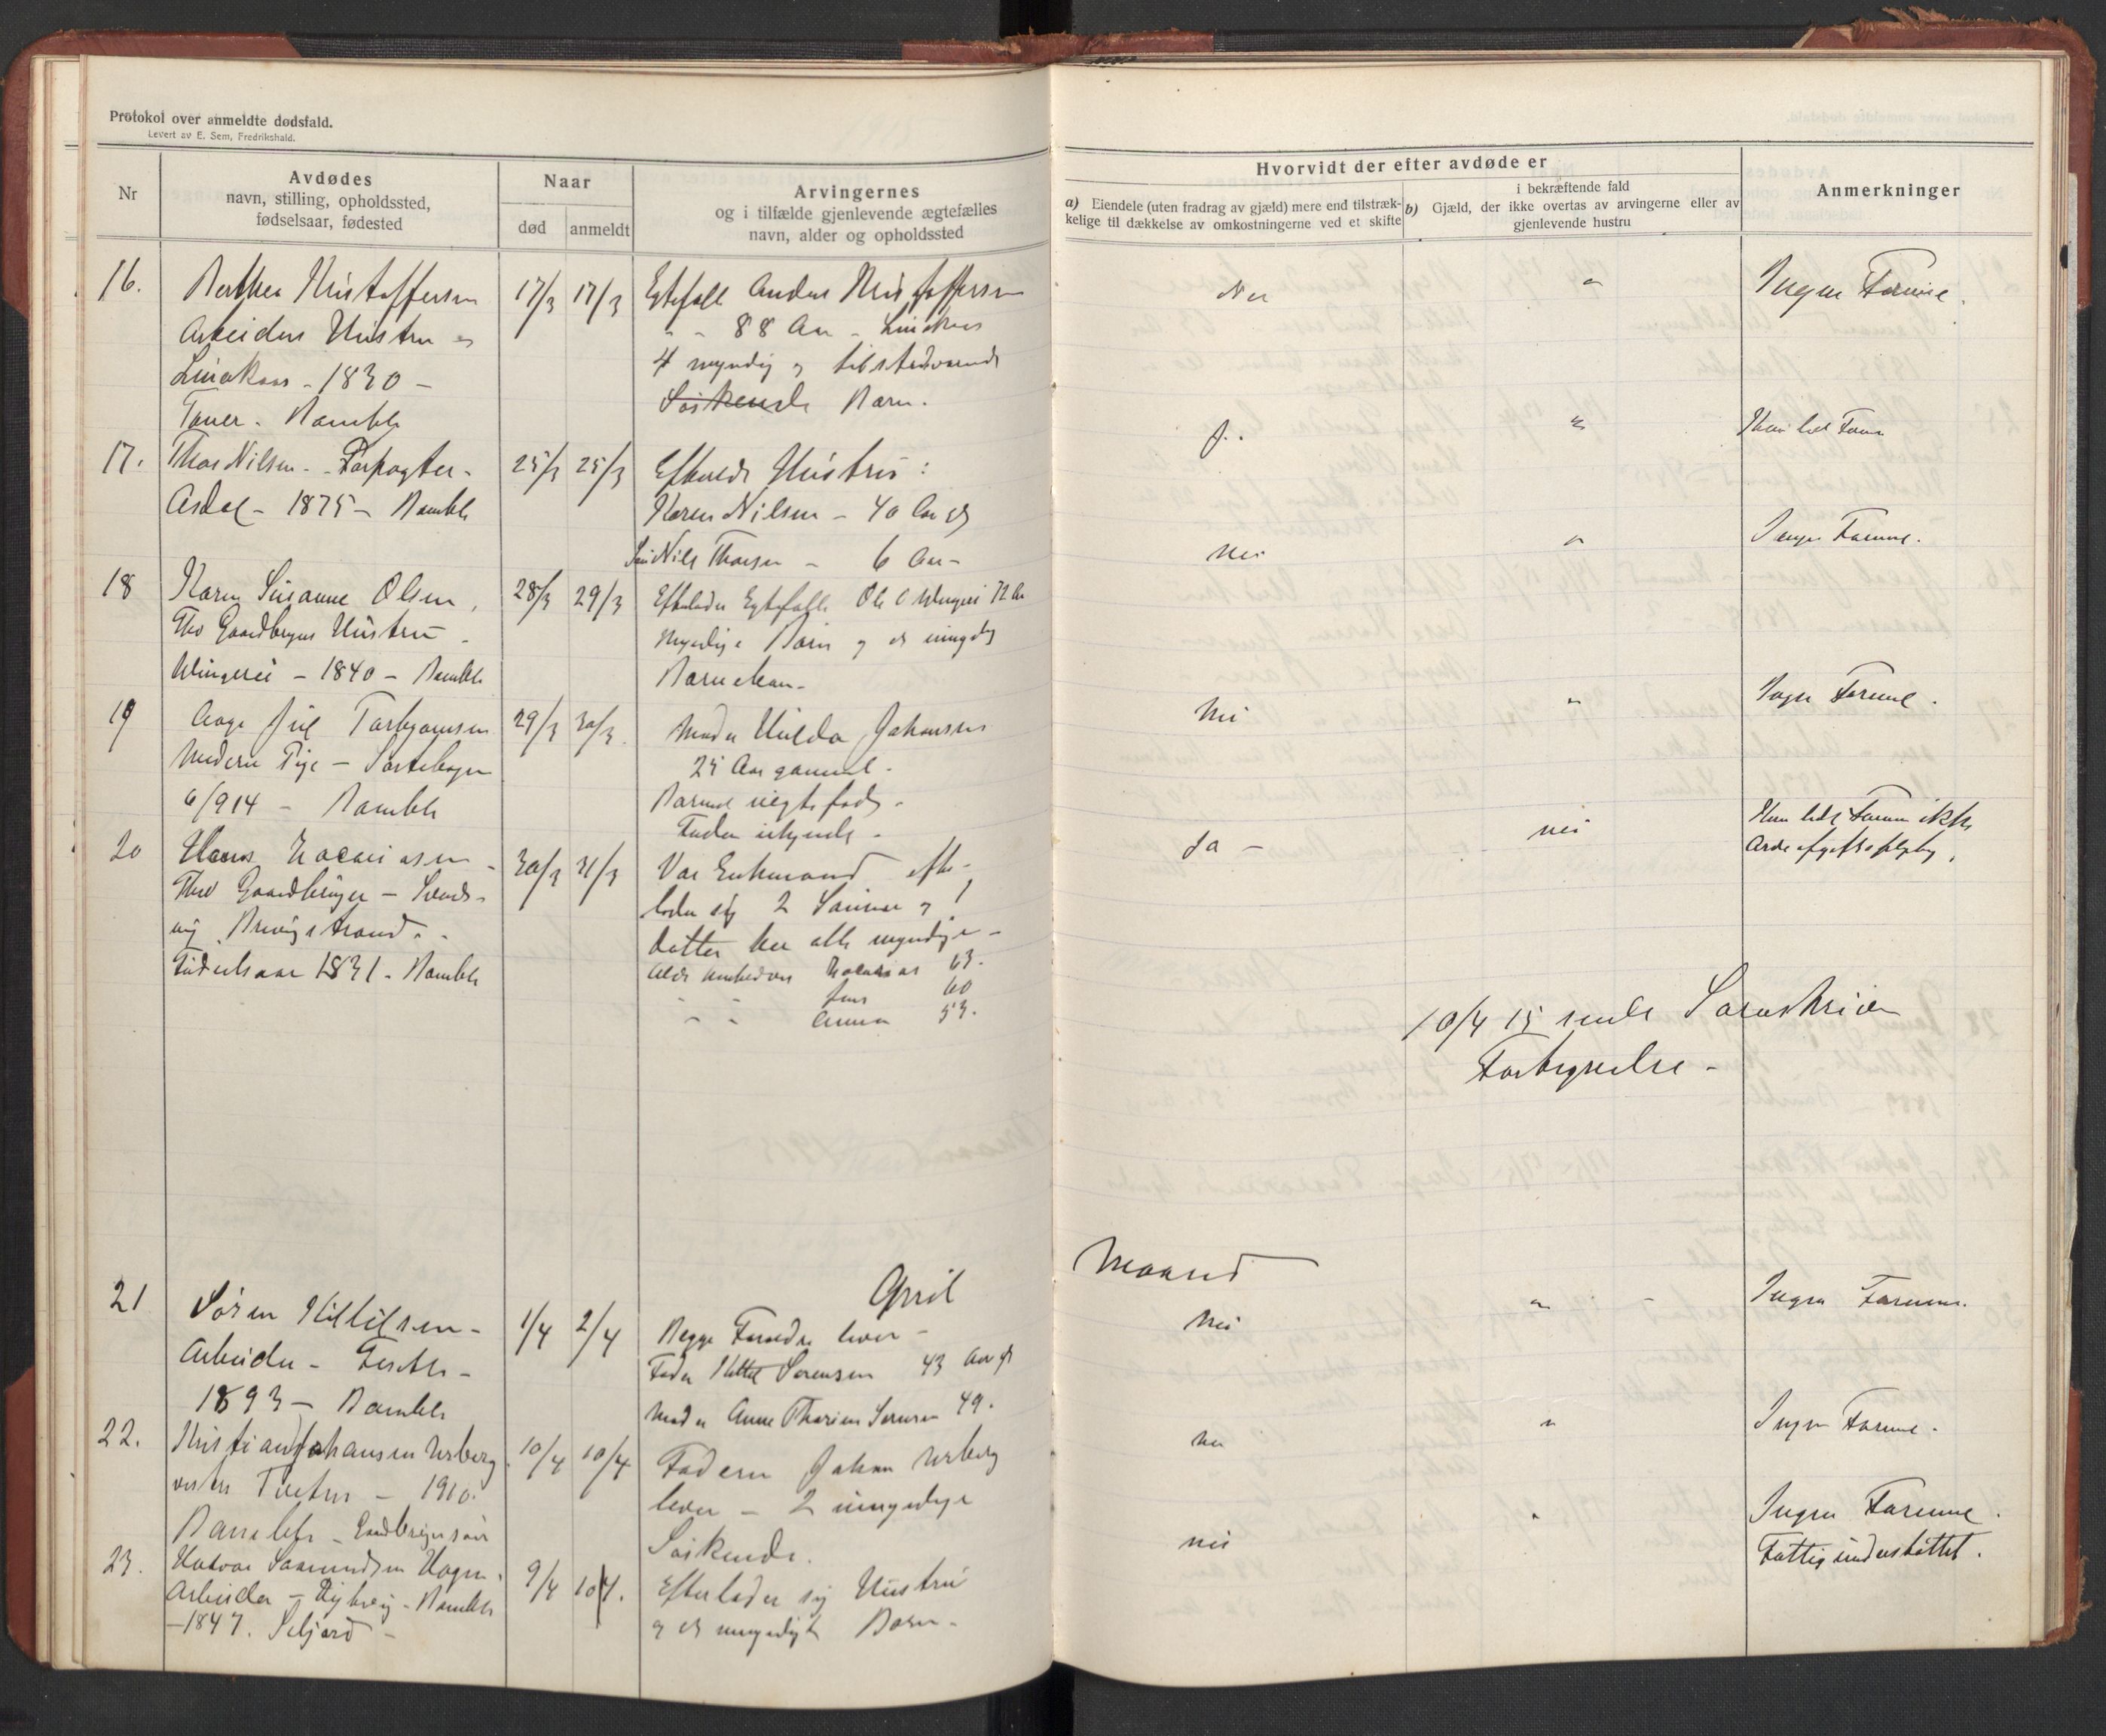 Protokol over anmeldte dødsfald.
Levert av E. Sem, Fredrikshald.
Nr
Avdødes
navn, stilling, opholdssted,
fødselsaar, fødested
Naar
død
anmeldt
Arvingernes
og i tilfælde gjenlevende ægtefælles
navn, alder og opholdssted
Hvorvidt der efter avdøde er
a) Eiendele (uten fradrag av gjæld) mere end tilstræk-
kelige til dækkelse av omkostningerne ved et skifte
i bekræftende fald
b) Gjæld, der ikke overtas av arvingerne eller av
gjenlevende hustru
Anmerkninger
16.
Berthea Kristoffersen
Arbeiders Hustru
1830 -
Bamble
17/3 17/3
Egtefolk Anders Kristoffersen
- - 88 Aar -
4 myndig og tilstedværende
Søskende Barn.
Nei
"
Ingen Formue.
17.
Thor Nilsen - Forpagter -
Asdal - 1875 - Bamble
25/3 25/3
Hustru:
Karen Nilsen - 40 Aar og
Søn Nils Thorsen - 6 Aar -
Ja.
"
18
Karen Susanne Olsen,
Fhv Gaardbrugers Hustru -
1840 - Bamble
28/3 29/3
Efterlader Egtefolk Ole 72 Aar
Myndige Børn og et umyndig
Barnebarn -
Nei
"
Ingen Formue.
19
Aage Juel Torbjørnsen
6/914 - Bamble
29/3 30/3
Moder Hulda Johansen
25 Aar gammel -
Barnet uegte født -
Faderen ukjendt -
Nei
"
Ingen Formue.
20
Hans Zacariasen -
Fhv Gaardbruger -
Fødselsaar 1831 - Bamble
30/3 31/3
Var Enkemand efter-
lader sig 2 Sønner og 1
datter her alle myndige -
Zacarias 63.
Jens 60
- - Anna 53.
Ja -
nei
10/4 15 sendt Sorenskriveren
Fortegnelse -
April
Maaned
21
Søren Kittilsen -
Arbeider -
1893 - Bamble
1/4 2/4
Begge Forældre lever -
Fader Kittel Sørensen 43 Aar og
Moder Anne Thorine Sørensen 49.
Nei
"
Ingen Formue.
22.
Kristian Johansen Urberg
vestre Tveten - 1910.
Bamble - Gaardbrugersøn
10/4 10/4
Faderen Johan Urberg
lever - 2 umyndige
Søskende.
nei
"
Ingen Formue.
23.
Halvor Saamundsen Hagen.
Arbeider - - Bamble
- 1847. Seljord -
9/4 10/4.
Efterlader sig Hustru
og et umyndigt Barn -
nei
"
Ingen Formue.
Fattigunderstøttet.